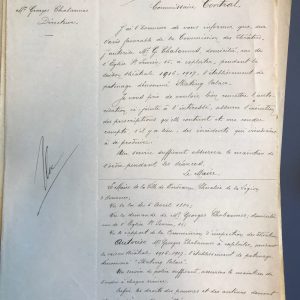 Mr Georges Chabannes
Directeur
Commissaire Central,
J'ai l'honneur de vous informer que, sur
l'avis favorable de la Commission des théâtres,
j'autorise Mr G. Chabannes, domicilié rue
de l'Eglise St 8, à exploiter, pendant la
saison théâtrale 1916-1917, l'établissement de
patinage dénommé Skating Palace.
Je vous prie de vouloir bien remettre l'autori-
sation ci-jointe à l'intéressé, assurer l'exécution
des prescriptions qu'elle contient et me rendre
compte, s'il y a lieu, des incidents qui viendraient
à se produire.
Un service suffisant assurera le maintien de
l'ordre pendant les séances.
Le Maire
Le Maire de la Ville de Bordeaux, Chevalier de la Légion
d'honneur,
Vu la loi du 5 Avril 1884;
Vu la demande de Mr Georges Chabannes, domicilié
rue de l'Eglise St
Vu le rapport de la Commission d'inspection des théâtres
Autorise Mr Georges Chabannes à exploiter, pendant
la saison théâtrale 1916-1917, l'établissement de patinage
dénommé "Skating Palace".
Un service de police suffisant assurera le maintien de
l'ordre à chaque séance.
les droits des pauvres et des auteurs devront